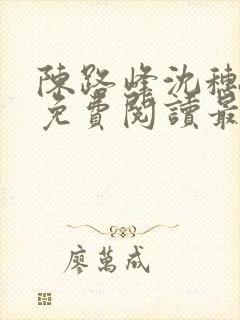 陳路峰沈穗
免費閱讀最
廖萬成